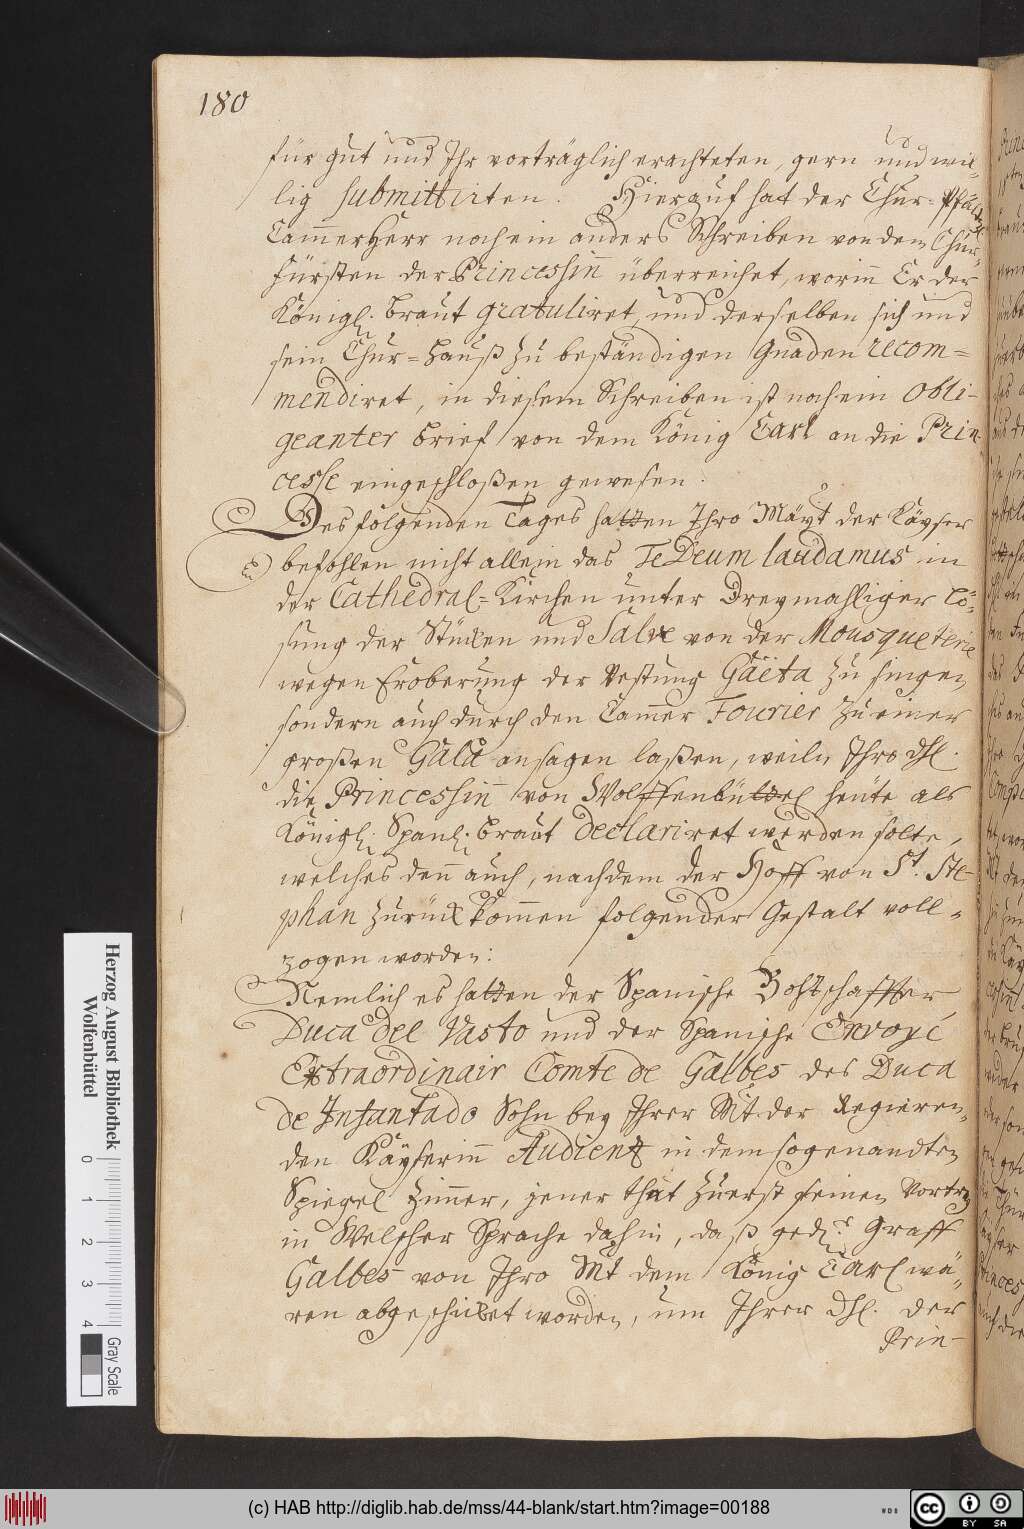 180
für gut und Ihr vorträglich erachteten, gern und wil-
lig submittirten. Hierauf hat der Chur-Pfältz.
Cammer Herr noch ein anders Schreiben von dem Chur-
fürsten der Princessinn überreichet, worinn Er der
Königl. Braut gratuliret, und derselben sich und
sein Chur=Hauß zu beständigen Gnaden recom=
mendiret, in diesem Schreiben ist noch ein obli-
geanter Brief von dem König Carl an die Prin-
cesse eingeschloßen gewesen.
Des folgenden Tages hatten Ihro Mäyt der Käyser
befohlen nicht allein das Te Deum laudamus in
der Cathedral=Kirchen unter Dreymahliger Lö-
sung der Stücken und Salve von der Mousqueterie
wegen Eroberung der Vestung Gäeta zu singen
sondern auch durch den Cammer Fourier zu einer
großen Gala ansagen laßen, weiln Ihro Dhl.
die Princessinn von Wolffenbüttel heute als
Königl. Spanl. Braut declariret werden solte,
welches denn auch, nachdem der Hoff von St. Ste-
phan zurück kommen folgender Gestalt voll-
zogen worden:
Nemlich es hatten der Spanische Bohtschaffter
Duca del Vasto und der Spanische Envoyé
Extraordinair Comte de Galbes des Duca
de Infantado Sohn bey Ihrer Mt. der Regieren-
den Käyserinn Audientz in dem sogenandten
Spiegel Zimmer, jener that zuerst seinen Vortrag
in Welscher Sprache dahin, daß ged. Graff
Galbes von Ihro Mt dem König Carl wä-
ren abgeschicket worden, um Ihrer Dhl. der
Prin-
Herzog August Bibliothek
Wolfenbüttel
0 1 2 3 4
Gray Scale
(c) HAB http://diglib.hab.de/mss/44-blank/start.htm?image=00188
WDB
cc BY SA